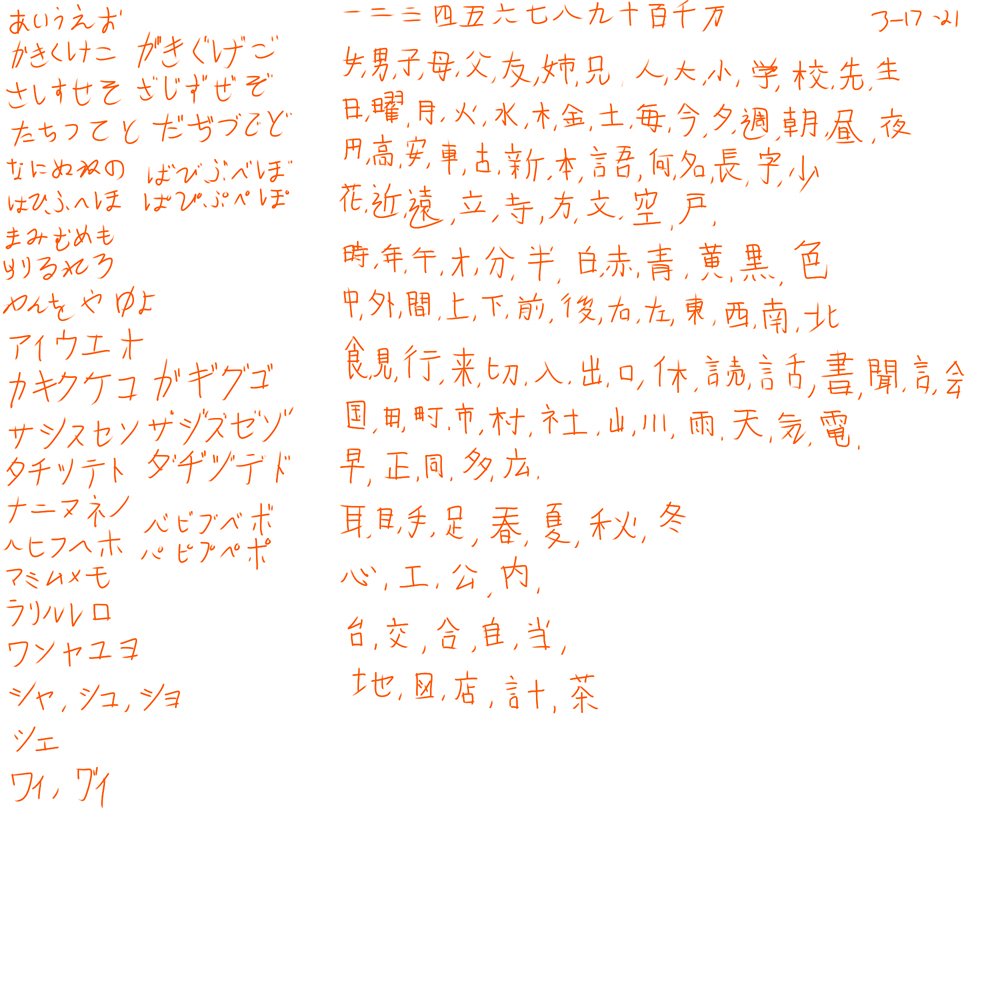 あいうえお
がきくけこ がきぐげご
さしすせそ ざじずぜぞ
たちつてと だぢづでど
なにぬねの ばびぶべぼ
はひふへほ ぱぴぷぺぽ
まみむめも
りるれろ
やんをやゆよ
アイウエオ
カキクケコ ガギグゴ
サシスセソ ザジズゼゾ
タチツテト ダヂヅデド
ナニヌネノ バビブベボ
ヘヒフヘホ パピプペポ
マミムメモ
ラリルレロ
ワンヤユヨ
シャ, シュ, ショ
シェ
ワイ, グイ
一二三四五六七八九十百千万
3-17-21
女,男,子,母,父,友,姉,兄 人,大,小,学,校,先,生
日,曜,月,火,水,木,金,土,毎,今,夕,週,朝,昼,夜
円,高,安,車,古,新,本,語,何,名,長,字,少
花,近,遠,立,寺,方,文,空,戸,
時,年,午,才,分,半,白,赤,青,黄,黒,色
中,外,間,上,下,前,後,右,左,東,西,南,北
食,見,行,来,切,入,出,口,休,読,話,書,聞,言,会
国,田,町,市,村,社,山,川,雨,天,気,電,
早,正,同,多,広,
耳,目,手,足,春,夏,秋,冬
心,工,公,内,
台,交,合,自,当,
地,図,店,計,茶